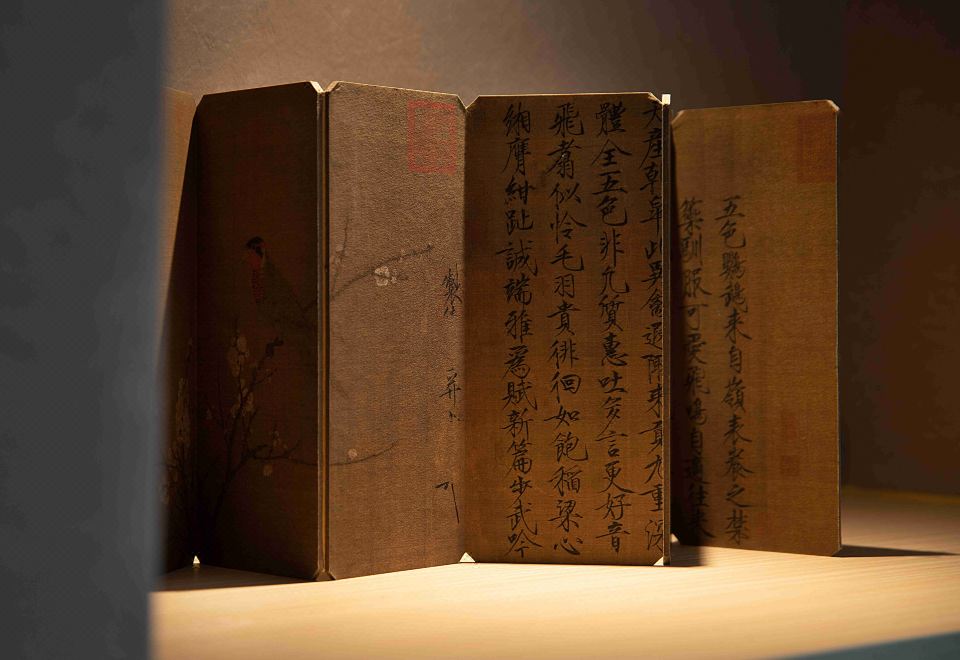 五色鸚鵡來自嶺表養之禁
籞馴服可愛飛鳴自適往來
天產乾皋此異禽遐陬來貢九重深
體全五色非凡質惠吐多言更好音
飛翥似怜毛羽貴徘徊如飽稻粱心
緗膺紺趾誠端雅爲賦新篇步武吟